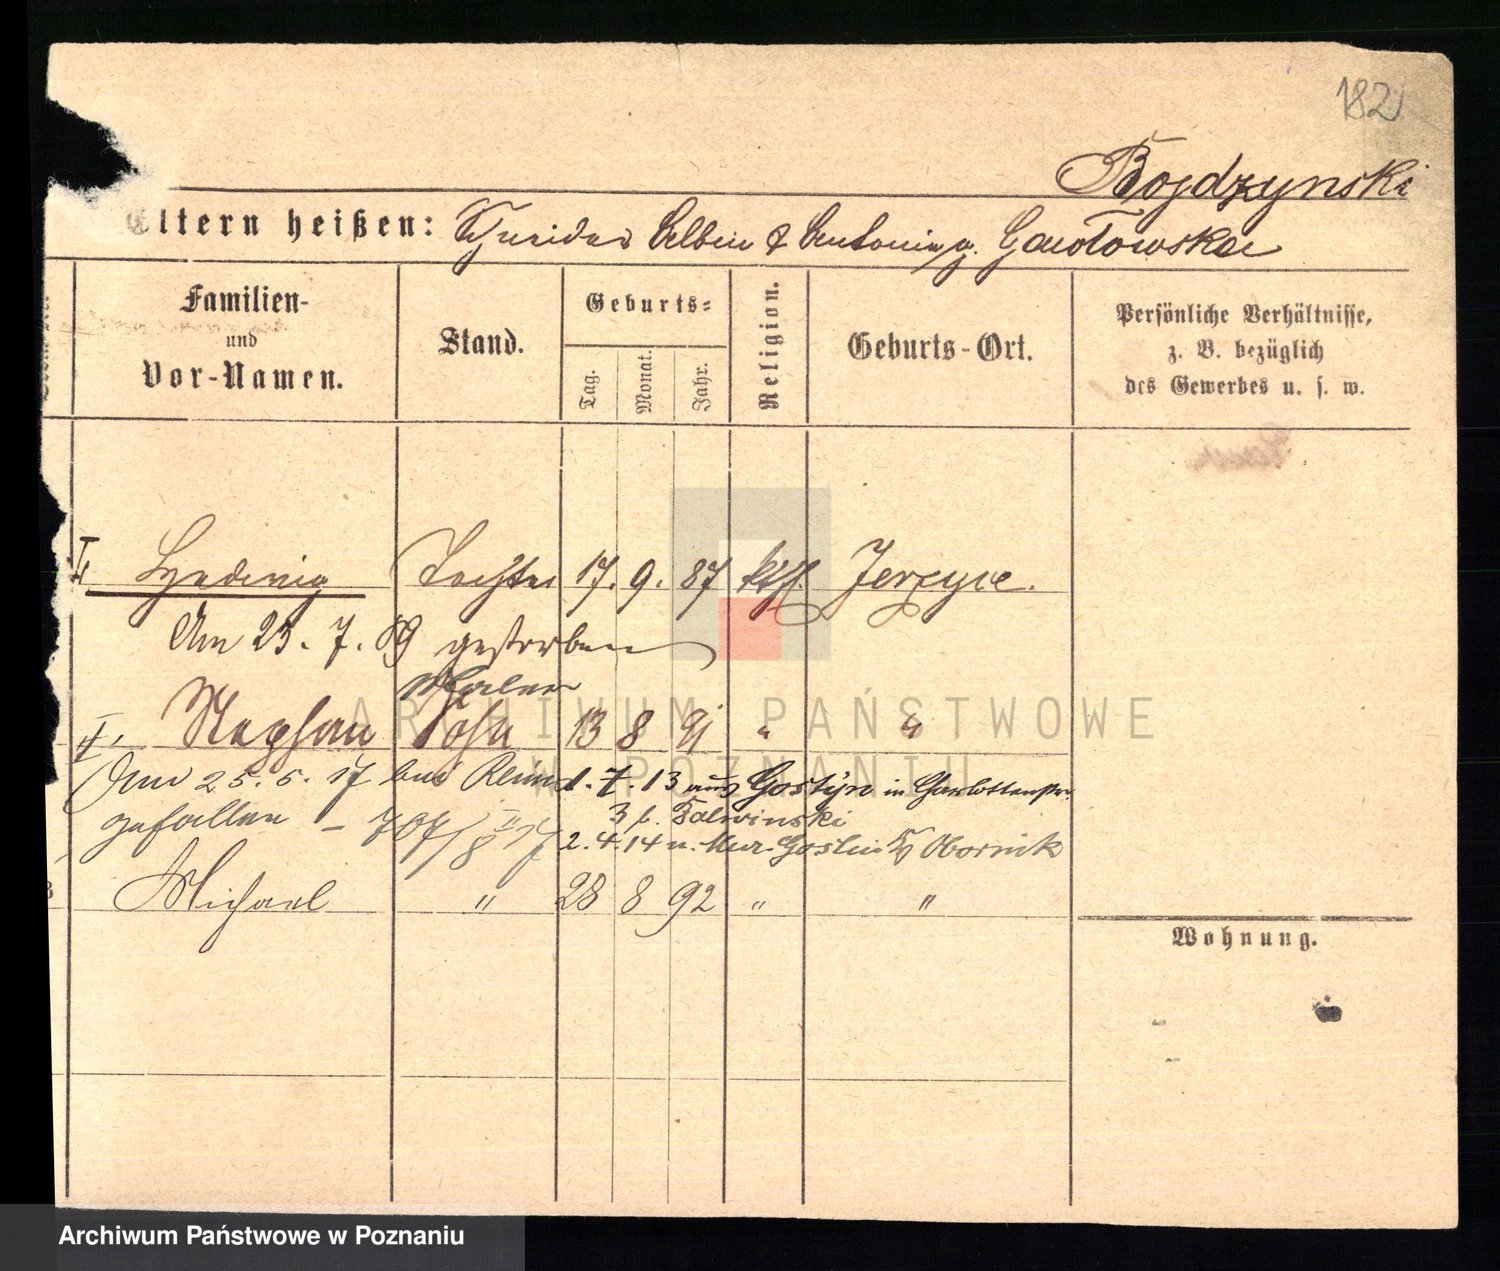 182
Bogdzynski
Eltern heißen: Schneider Albin & Antonie g. Gawłowska
Familien-
und
Vor-Namen.
Stand.
Geburts-
Tag.
Monat.
Jahr.
Religion.
Geburts-Ort.
Persönliche Verhältnisse,
z. B. bezüglich
des Gewerbes u. s. w.
I, Hedwig Tochter 17. 9. 87 kth. Jerzyce.
Am 23. 7. 89 gestorben
Maler
Stephan Sohn 13 8 91 " "
Am 25. 5. 17 bei 1. 7. 13 aus Gostyn in Charlottenstr.
gefallen - 707/8 II 17 3 b. Falwinski
2. 4. 14 n. Mur. Goslin Obornik
Michael " 28 8 92 " "
Wohnung.
ARCHIWUM PAŃSTWOWE
W POZNANIU
Archiwum Państwowe w Poznaniu